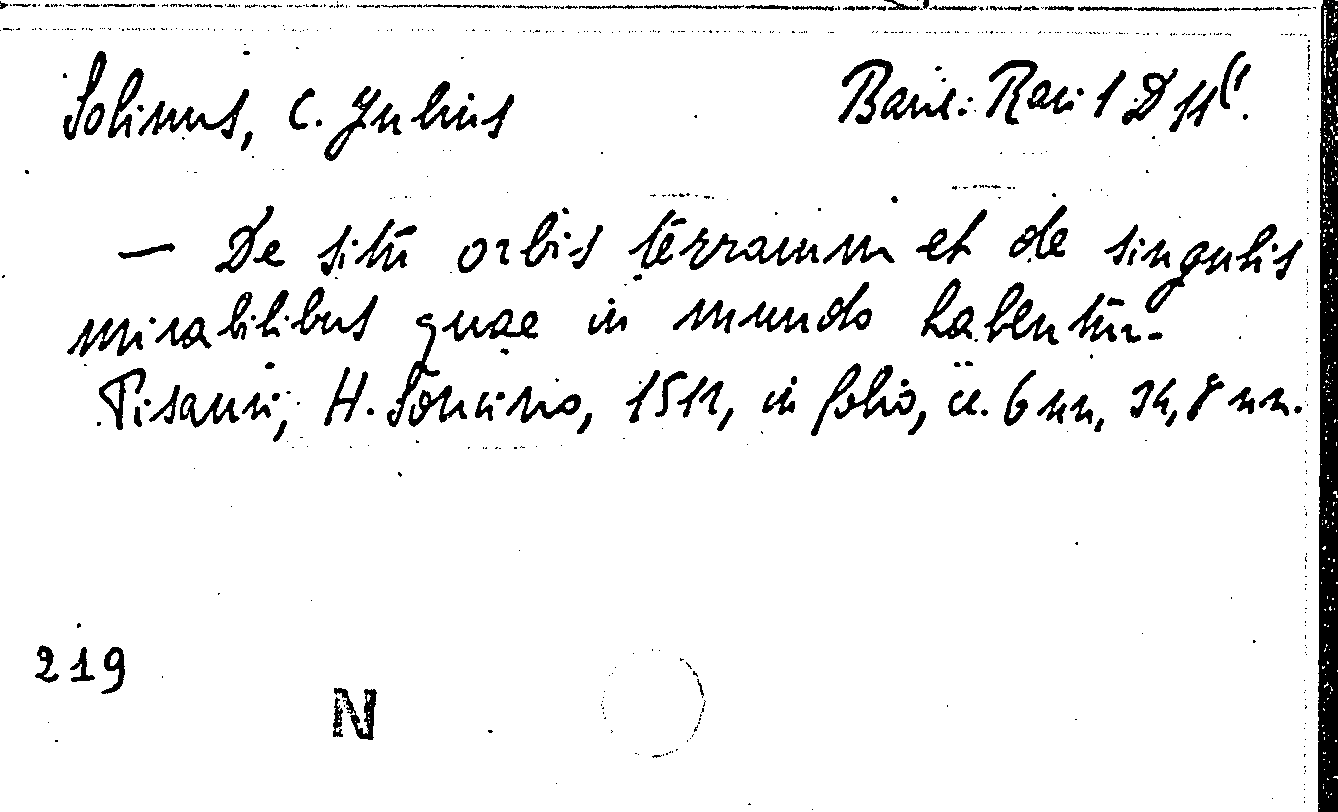 Solinus, C. Julius Banc. Rari 1 D 11
— De sitū orbis terrarum et de singulis
mirabilibus quae in mundo habentūr.
Pisauri, H. Soncino, 1512, in folio, cc. 6 nn, 34, 8 nn.
219
N